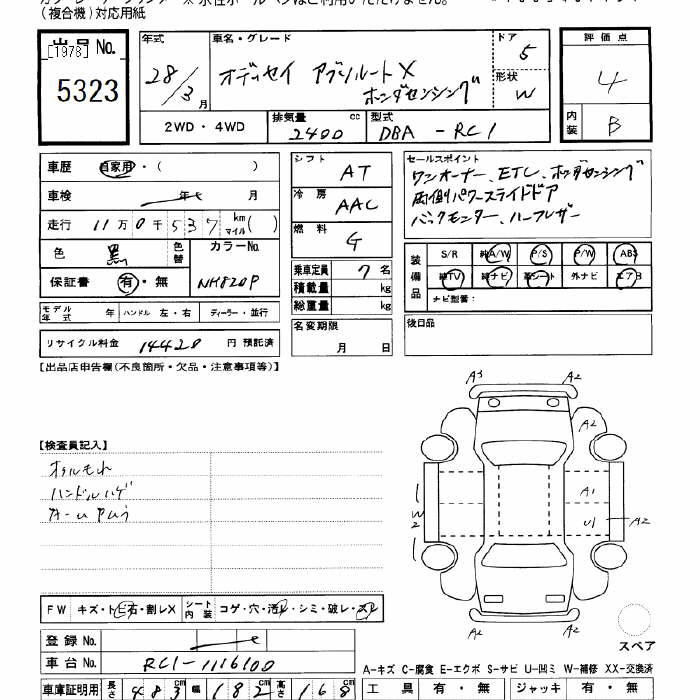 （複合機）対応用紙
出品No.
[1978]
5323
年式 28/3月
車名・グレード オデッセイ アブソルートX ホンダセンシング
ドア 5
形状 W
2WD・4WD
排気量 2400 cc
型式 DBA-RC1
評価点 4
内装 B
車歴 自家用・（ ）
車検 年 月
走行 11万0千537 km マイル( )
色 黒 色替
カラーNo. NH820P
保証書 有・無
モデル年式 年 ハンドル 左・右 ディーラー・並行
リサイクル料金 14420 円 預託済
シフト AT
冷房 AAC
燃料 G
乗車定員 7 名
積載量 kg
総重量 kg
名変期限 月 日
セールスポイント
ワンオーナー、ETC、ホンダセンシング
両側パワースライドドア
バックモニター、ハーフレザー
装備品 S/R 純A/W P/S P/W ABS
純TV 純ナビ 革シート 外ナビ エアB
ナビ型番：
後日品
[出品店申告欄(不良箇所・欠品・注意事項等)]
A3 A2
A2
[検査員記入]
オイルもれ
ハンドルハゲ
A1
W2 U1 A2
FW キズ・トビ石・割レX シート内装 コゲ・穴・汚レ・シミ・破レ・スレ
A2
スペア
登録No.
車台No. RC1-1116100
A-キズ C-腐食 E-エクボ S-サビ U-凹ミ W-補修 XX-交換済
車庫証明用 長さ 483cm 幅 182cm 高さ 168cm
工具 有・無 ジャッキ 有・無